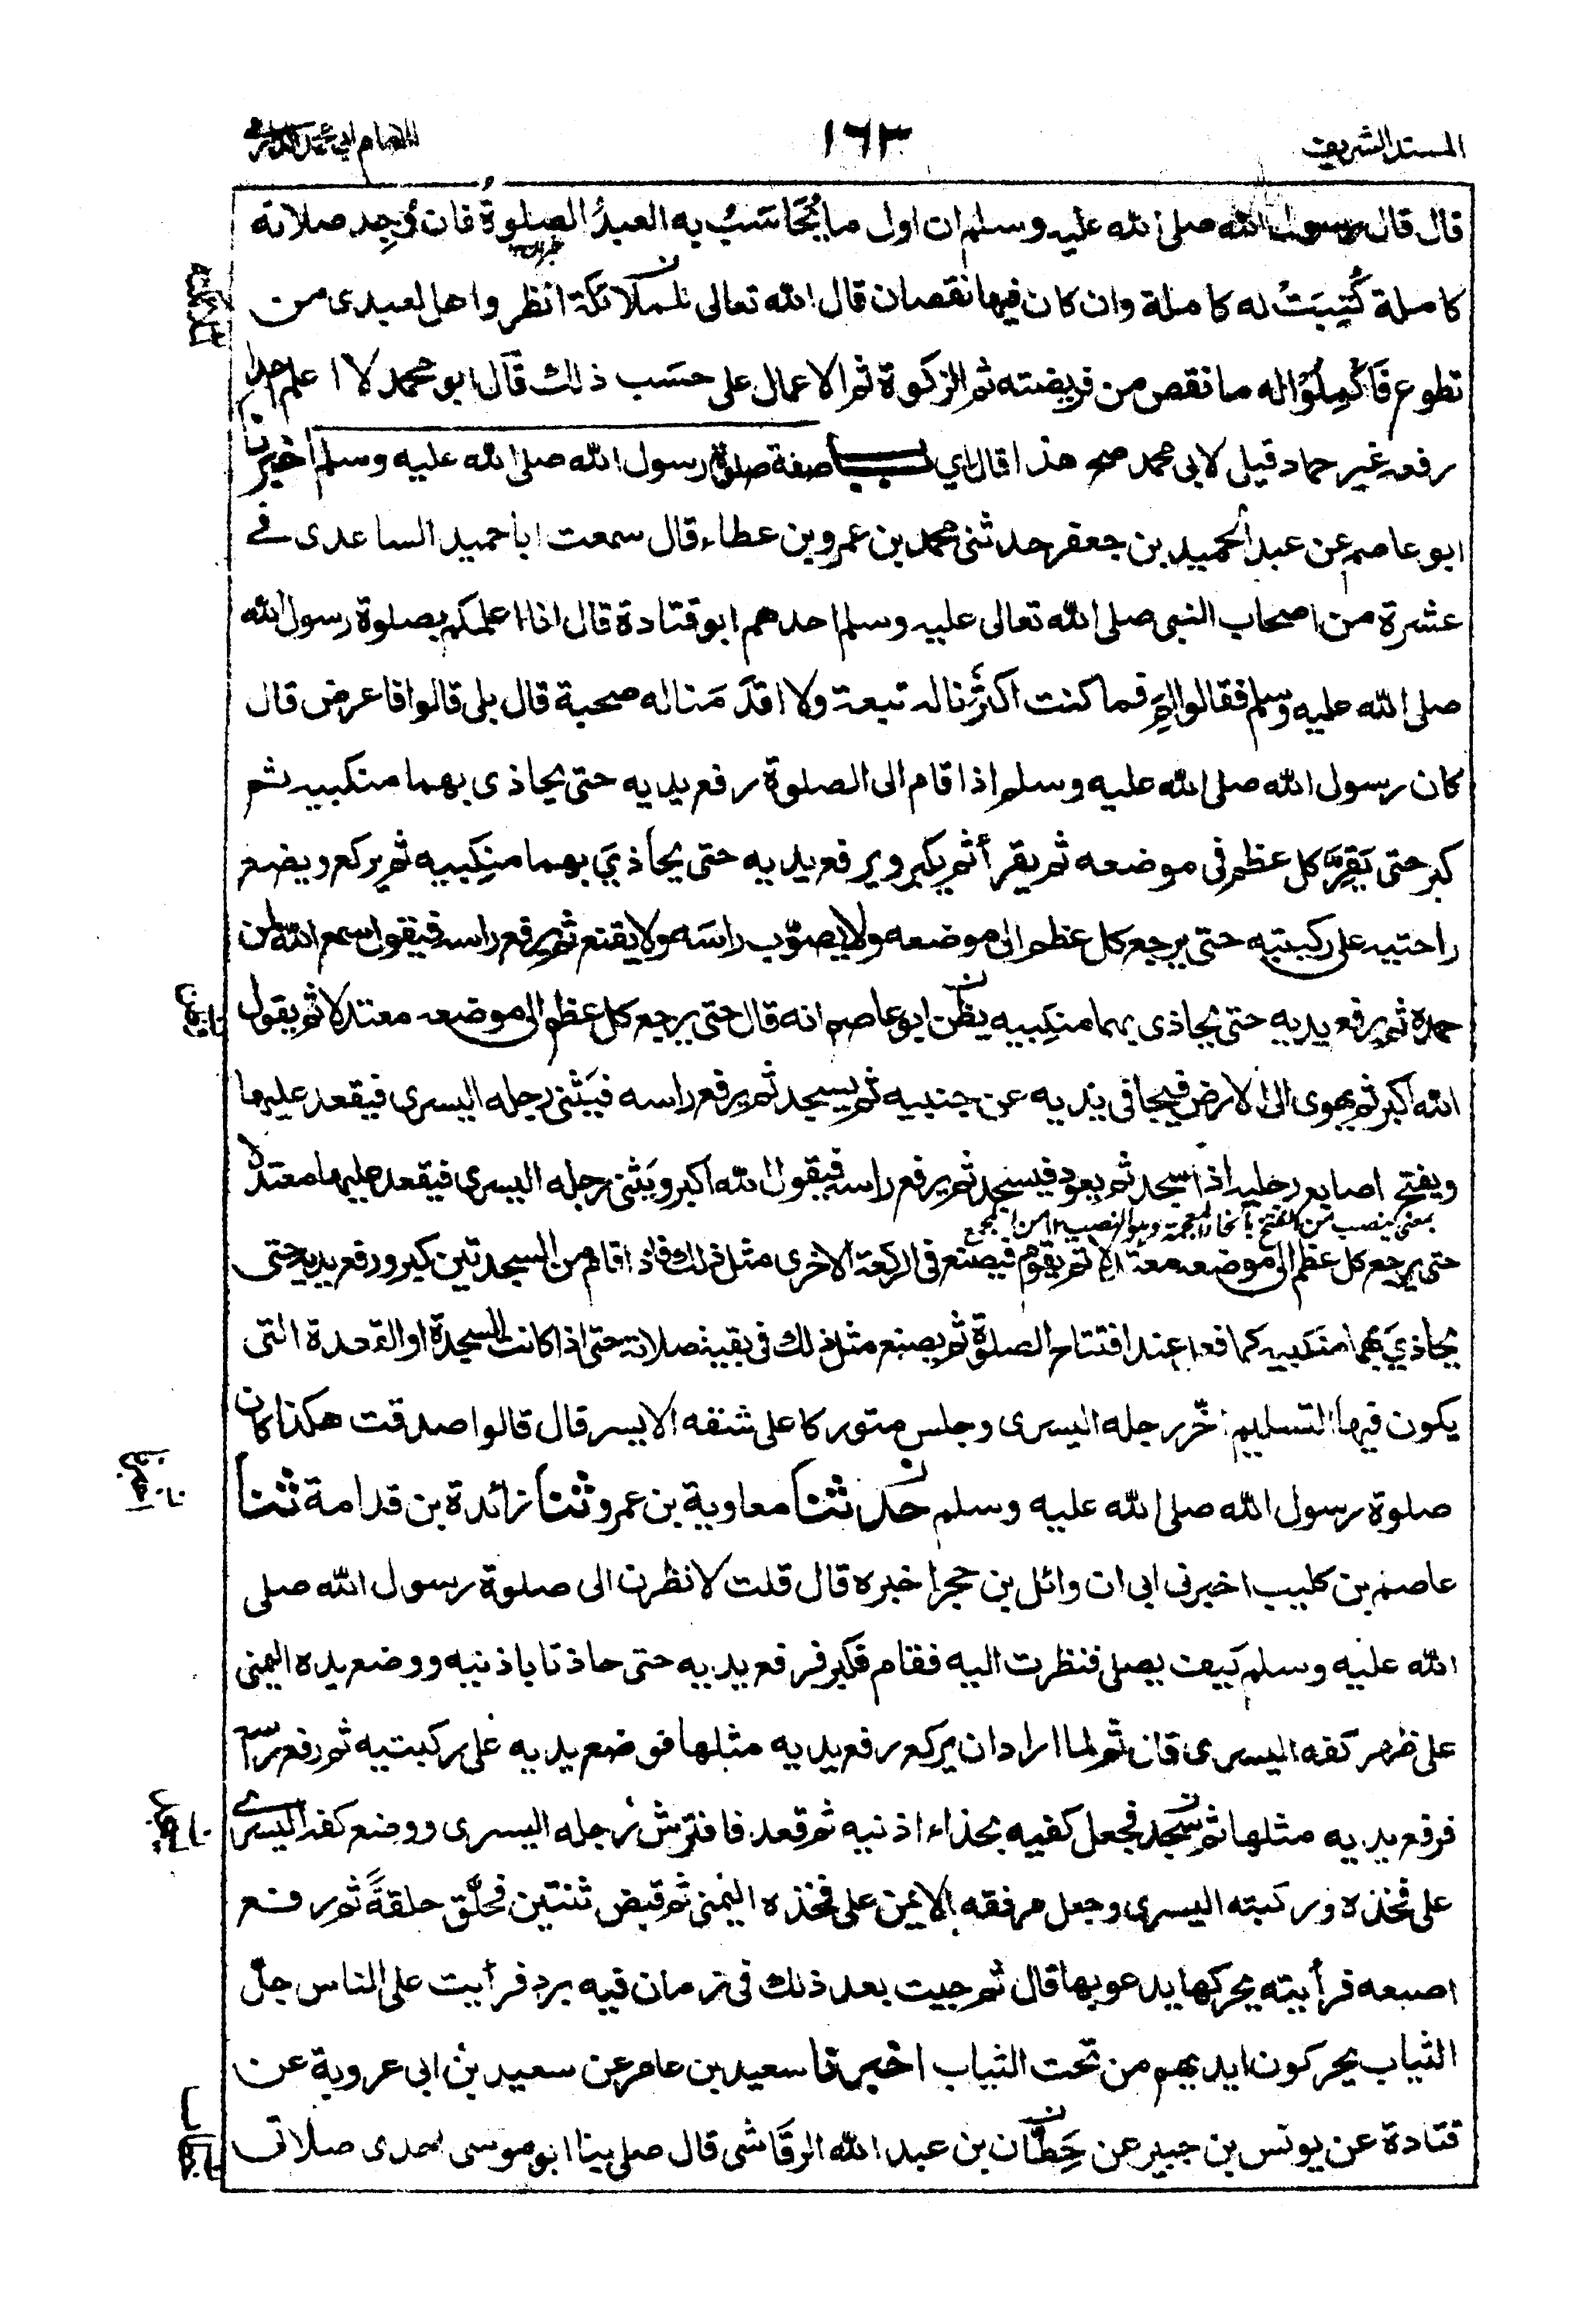 المسند الشريف
١٦٣
للامام ابي محمد الدارمي
قال قال رسول الله صلى الله عليه وسلم ان اول ما يُحَاسَبُ به العبدُ الصلوةُ فان وُجِد صلاته
كاملة كُتِبَتْ له كاملة وان كان فيها نقصان قال الله تعالى للملائكة انظروا هل لعبدى من
تطوع فَاَكْمِلُوْا له ما نقص من فريضته ثم الزكوة ثم الاعمال على حسَب ذلك قال ابو محمد لا اعلم احدا
رفعه غير حماد قيل لابى محمد صح هذا قال اي باب صفة صلوة رسول الله صلى الله عليه وسلم اخبرنا
ابو عاصم عن عبد الحميد بن جعفر حدثنى محمد بن عمرو بن عطاء قال سمعت ابا حميد الساعدى فے
عشرة من اصحاب النبى صلى الله تعالى عليه وسلم احدهم ابو قتادة قال انا اعلمكم بصلوة رسول الله
صلى الله عليه وسلم فقالوا لِمَ فما كنت اكثَرَنا له تبعة ولا اقدَمَنا له صحبة قال بلى قالوا فاعرض قال
كان رسول الله صلى الله عليه وسلم اذا قام الى الصلوة رفع يديه حتى يحاذى بهما منكبيه ثم
كبر حتى يَقِرَّ كل عظم فى موضعه ثم يقرأ ثم يكبر ويرفع يديه حتى يحاذيَ بهما منكِبيه ثم يركع ويضع
راحتيه على ركبتيه حتى يرجع كل عظم الى موضعه ولا يصوّب راسَه ولا يقنع ثم يرفع راسه فيقول سمع الله لمن
حمده ثم يرفع يديه حتى يحاذى بهما منكِبيه يظن ابو عاصم انه قال حتى يرجع كل عظم الى موضعه معتدلا ثم يقول
الله اكبر ثم يهوى الى الارض فيجافى يديه عن جنبيه ثم يسجد ثم يرفع راسه فيَثنى رجله اليسرى فيقعد عليها
ويفتح اصابع رجليه اذا سجد ثم يعود فيسجد ثم يرفع راسه فيقول الله اكبر ويَثنى رجله اليسرى فيقعد عليها معتدلا
حتى يرجع كل عظم الى موضعه معتدلا ثم يقوم فيصنع فى الركعة الاخرى مثل ذلك فاذا قام من السجدتين كبر ورفع يديه حتى
يحاذيَ بهما منكبيه كما فعل عند افتتاح الصلوة ثم يصنع مثل ذلك فى بقية صلاته حتى اذا كانت السجدة او القعدة التى
يكون فيها التسليم اخّر رجله اليسرى وجلس متوركا على شقه الايسر قال قالوا صدقت هكذا كان
صلوة رسول الله صلى الله عليه وسلم حدثنا معاوية بن عمرو ثنا زائدة بن قدامة ثنا
عاصم بن كليب اخبرنى ابى ان وائل بن حجر اخبره قال قلت لانظرن الى صلوة رسول الله صلى
الله عليه وسلم كيف يصلى فنظرت اليه فقام فكبر فرفع يديه حتى حاذتا باذنيه ووضع يده اليمنى
على ظهر كفه اليسرى قال ثم لما اراد ان يركع رفع يديه مثلها فوضع يديه على ركبتيه ثم رفع راسه
فرفع يديه مثلها ثم سجد فجعل كفيه بحذاء اذنيه ثم قعد فافترش رجله اليسرى ووضع كفه اليسرے
على فخذه وركبته اليسرى وجعل مرفقه الايمن على فخذه اليمنى ثم قبض ثنتين فحلّق حلقةً ثم رفع
اصبعه فرأيته يحركها يدعو بها قال ثم جيت بعد ذلك فى زمان فيه برد فرأيت على الناس جلّ
الثياب يحركون ايديهم من تحت الثياب اخبرنا سعيد بن عامر عن سعيد بن ابى عروبة عن
قتادة عن يونس بن جبير عن حِطّان بن عبد الله الرقَاشى قال صلى بنا ابو موسى احدى صلاتى